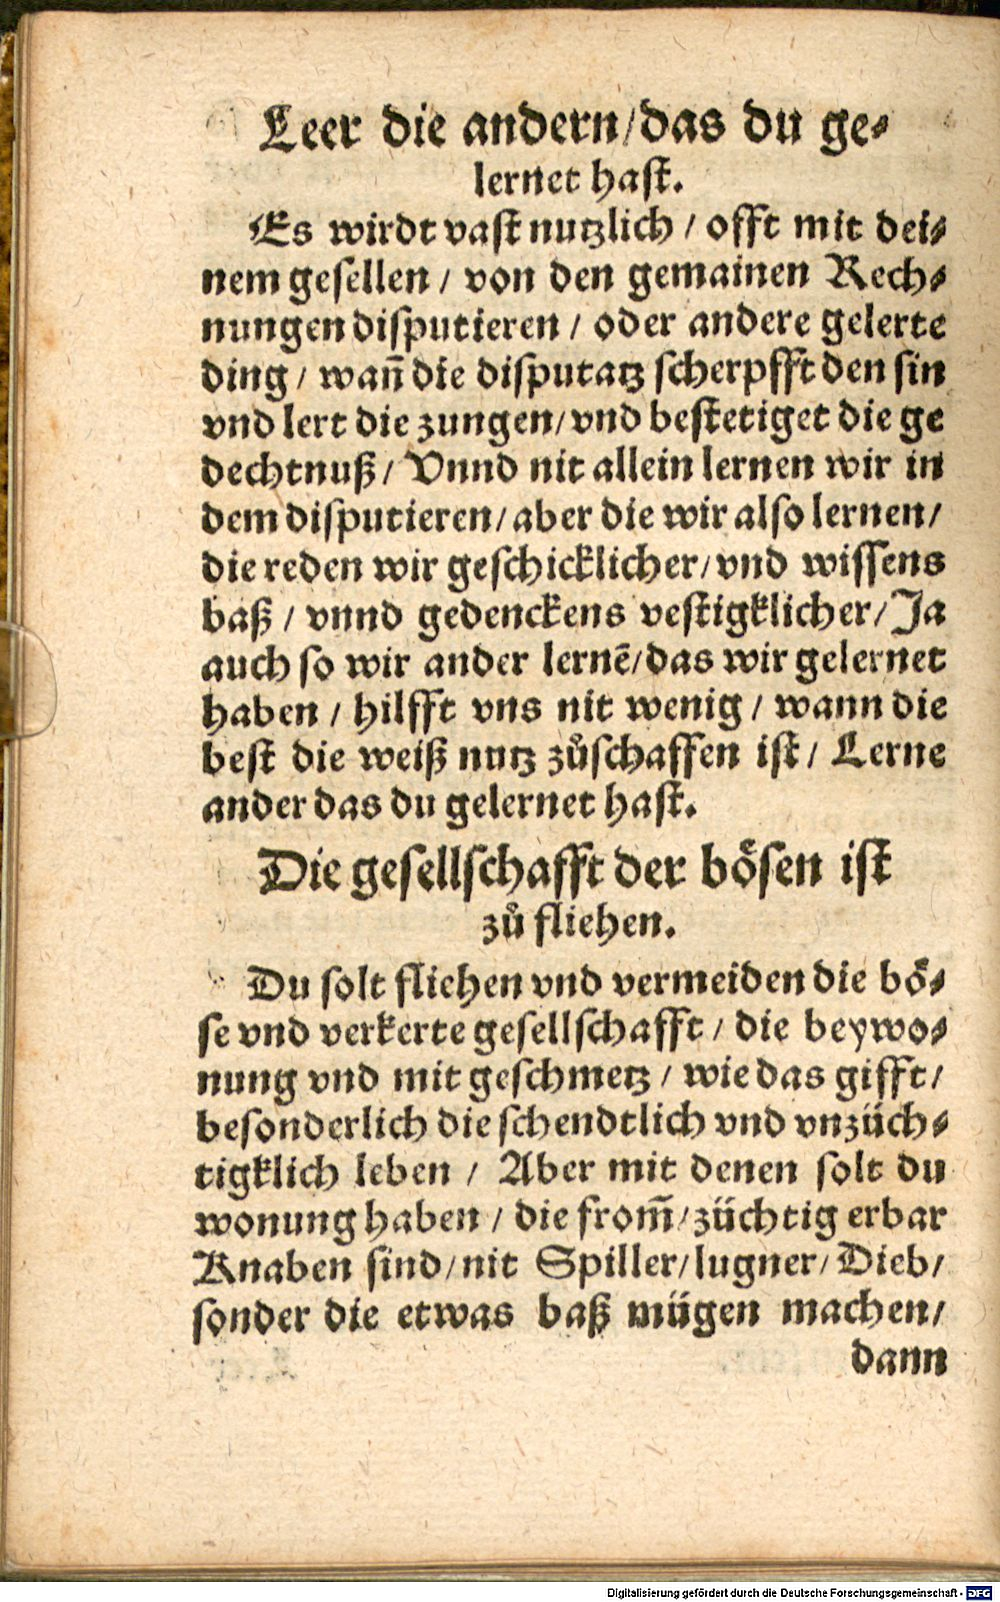 Leer die andern/das du ge-
lernet hast.
Es wirdt vast nutzlich / offt mit dei-
nem gesellen / von den gemainen Rech-
nungen disputieren / oder andere gelerte
ding / wañ die disputatz scherpfft den sin
vnd lert die zungen/vnd bestetiget die ge
dechtnuß / Vnnd nit allein lernen wir in
dem disputieren/aber die wir also lernen/
die reden wir geschicklicher/vnd wissens
baß / vnnd gedenckens vestigklicher/Ja
auch so wir ander lernē/das wir gelernet
haben / hilfft vns nit wenig / wann die
best die weiß nutz zůschaffen ist / Lerne
ander das du gelernet hast.
Die gesellschafft der bösen ist
zů fliehen.
Du solt fliehen vnd vermeiden die bö-
se vnd verkerte gesellschafft / die beywo-
nung vnd mit geschmetz / wie das gifft/
besonderlich die schendtlich vnd vnzüch-
tigklich leben / Aber mit denen solt du
wonung haben / die from̃/züchtig erbar
Knaben sind/nit Spiller/lugner/Dieb/
sonder die etwas baß mügen machen/
dann
Digitalisierung gefördert durch die Deutsche Forschungsgemeinschaft - DFG